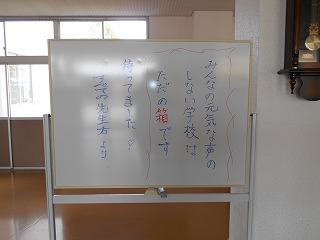 みんなの元気な声の
しない学校は
ただの箱です
待ってました♡
すべての先生方より